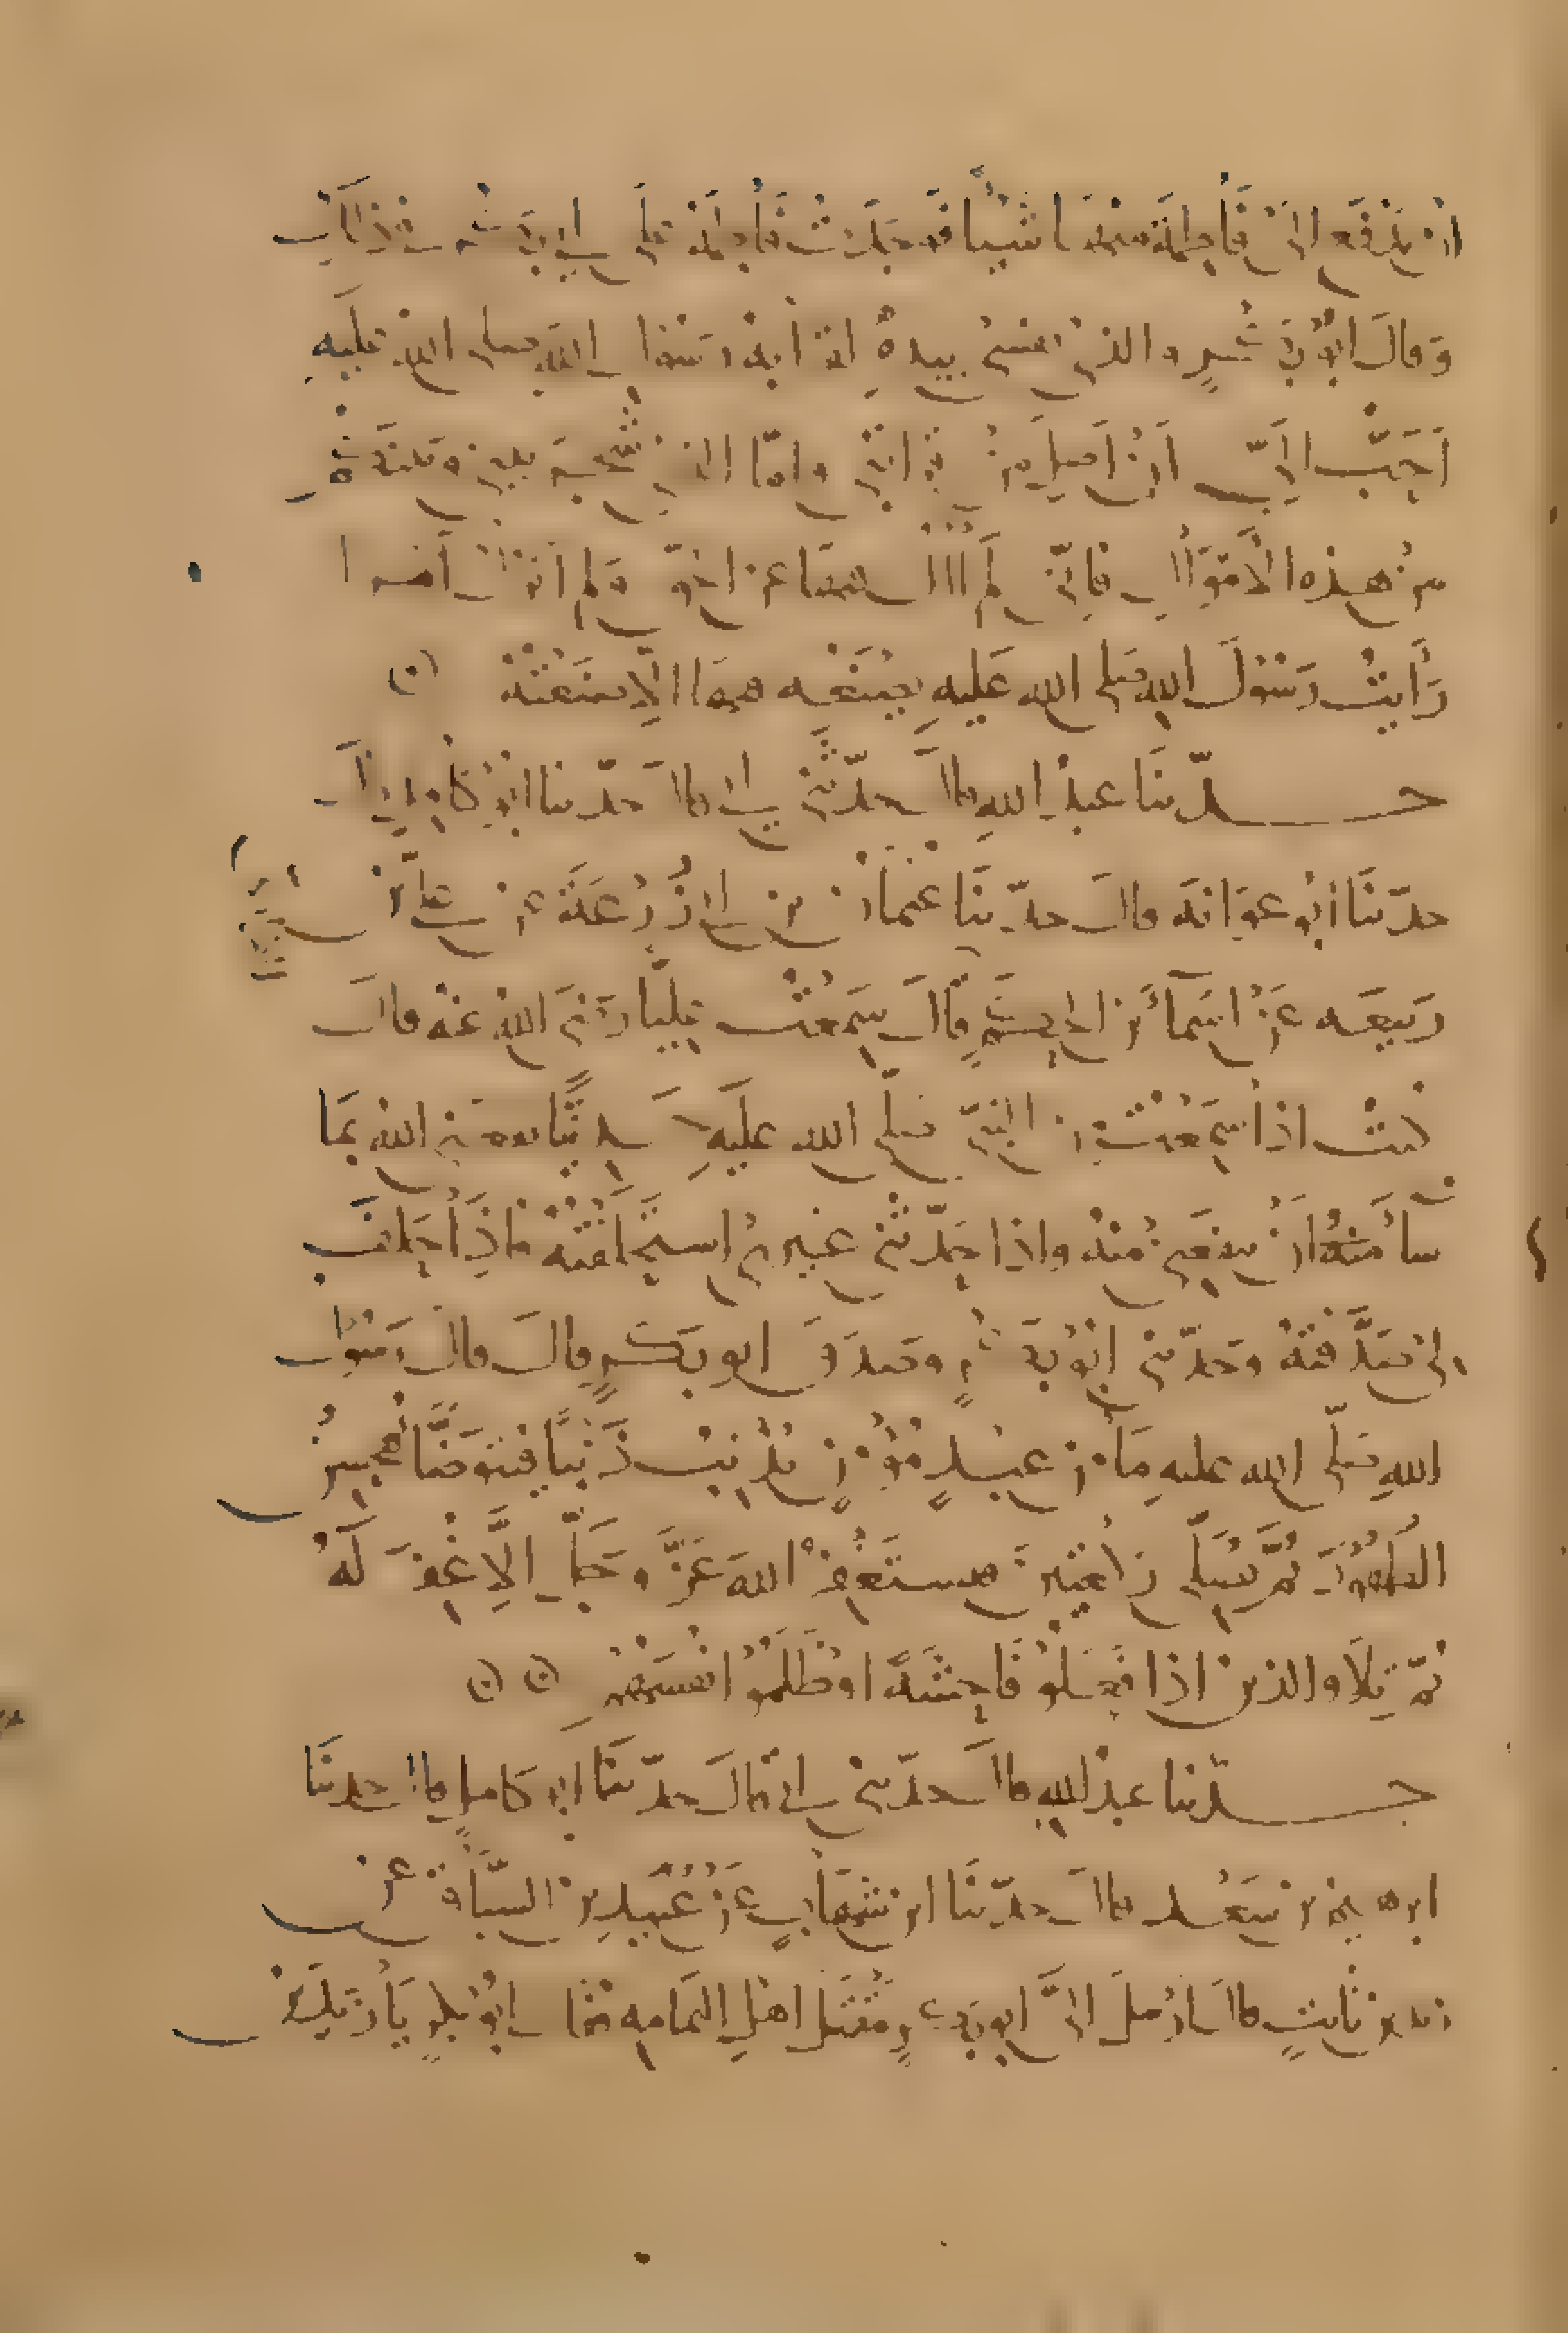 ان يدفع الى فاطمة منها شيئا فوجدت فاطمة على ابي بكر في ذلك
وقال ابو بكر والذي نفسي بيده لقرابة رسول الله صلى الله عليه
احب الي ان اصل من قرابتي واما الذي شجر بيني وبينكم
من هذه الاموال فاني لم آل فيها عن الحق ولم اترك امرا
رأيت رسول الله صلى الله عليه يصنعه فيها الا صنعته
حدثنا عبد الله قال حدثني ابي قال حدثنا ابو كامل قال
حدثنا ابو عوانة قال حدثنا عثمان بن ابي زرعة عن علي بن
ربيعه عن اسمآ بن الحكم قال سمعت عليا رضي الله عنه قال
كنت اذا سمعت من النبي صلى الله عليه حديثا نفعني الله بما
شا منه ان ينفعني منه واذا حدثني غيري استحلفته فاذا حلف
لي صدقته وحدثني ابو بكر وصدق ابو بكر قال قال رسول
الله صلى الله عليه ما من عبد مؤمن يذنب ذنبا فيتوضأ فيحسن
الطهور ثم يصلي ركعتين فيستغفر الله عز وجل الا غفر له
ثم تلا والذين اذا فعلوا فاحشة او ظلموا انفسهم
حدثنا عبد الله قال حدثني ابي قال حدثنا ابو كامل قال حدثنا
ابرهيم بن سعد قال حدثنا ابن شهاب عن عبيد بن السباق عن
زيد بن ثابت قال ارسل الي ابو بكر مقتل اهل اليمامه فقال ابو بكر يا زيد